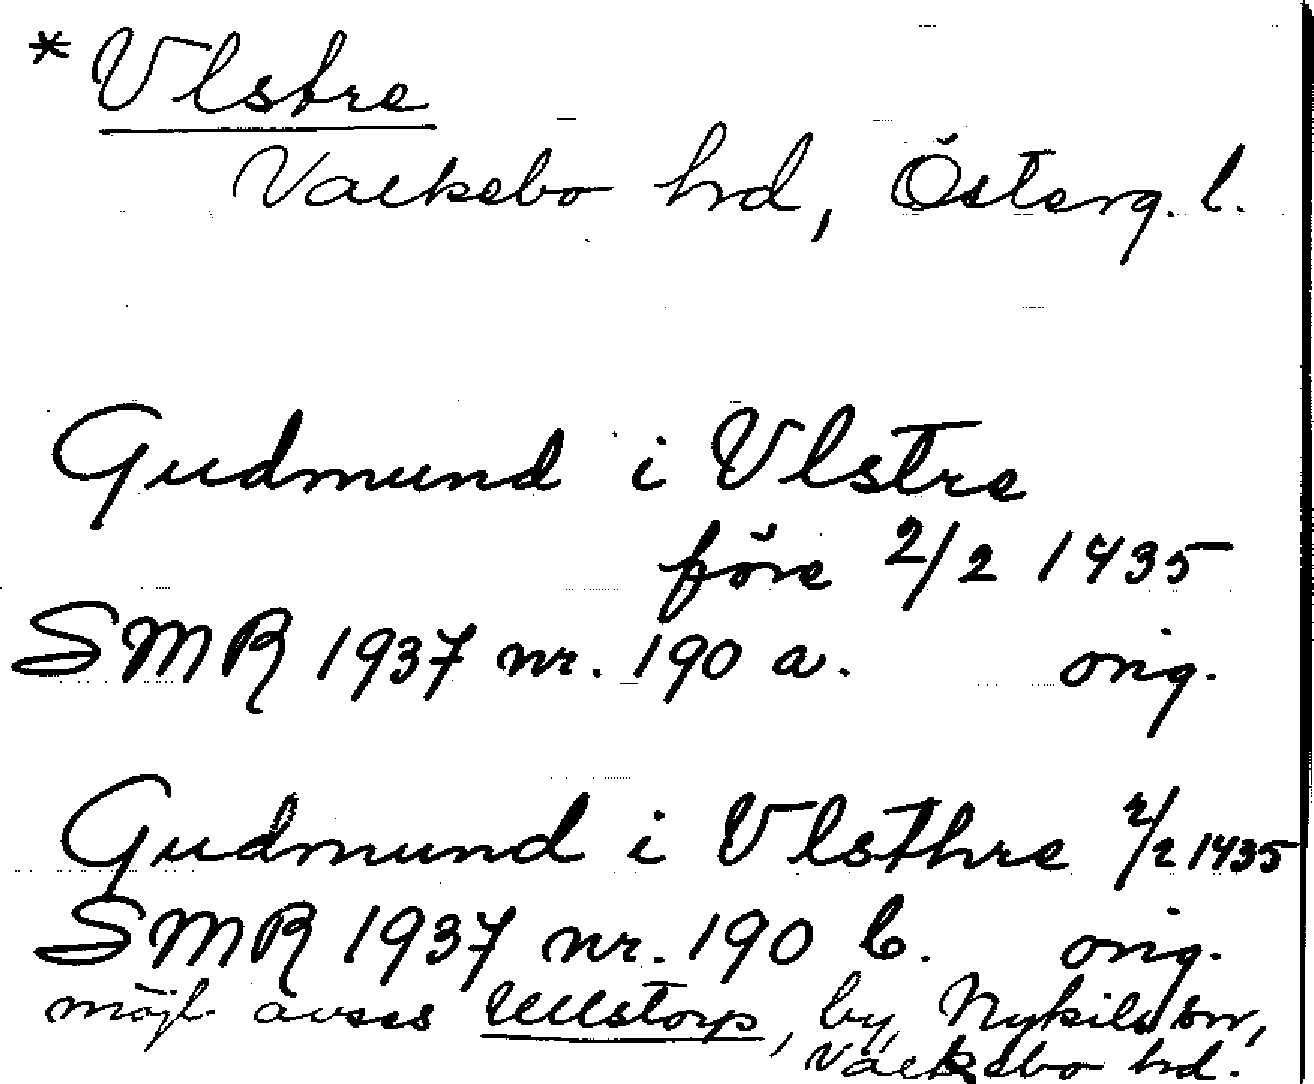 * Vlstre
Valkebo hrd, Österg. l.
Gudmund i Vlstre
före 2/2 1435
SMR 1937 nr. 190 a. orig.
Gudmund i Vlsthre 2/2 1435
SMR 1937 nr. 190 b. orig.
möjl. avses Ullstorp, by, Nykils sn,
Valkebo hrd.